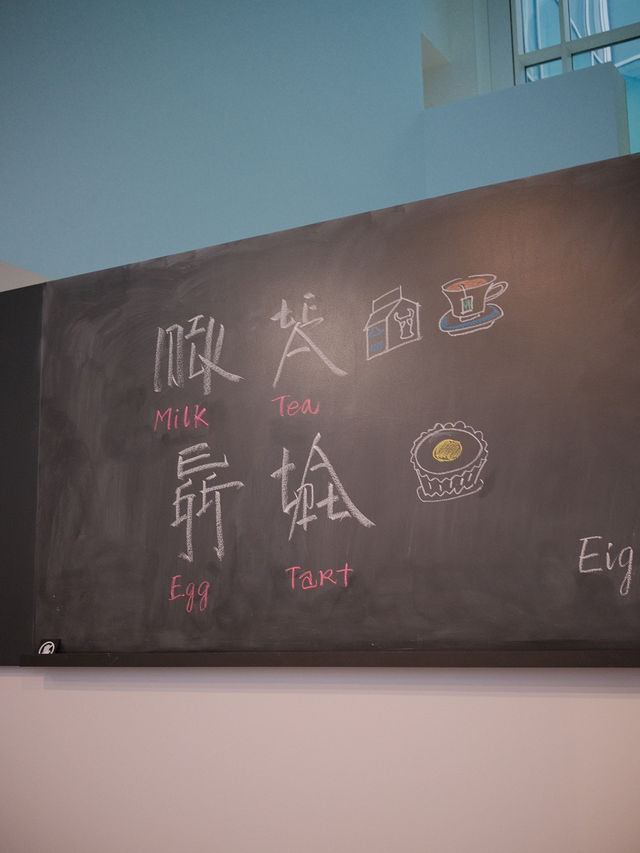 Milk Tea
Egg Tart
Eig